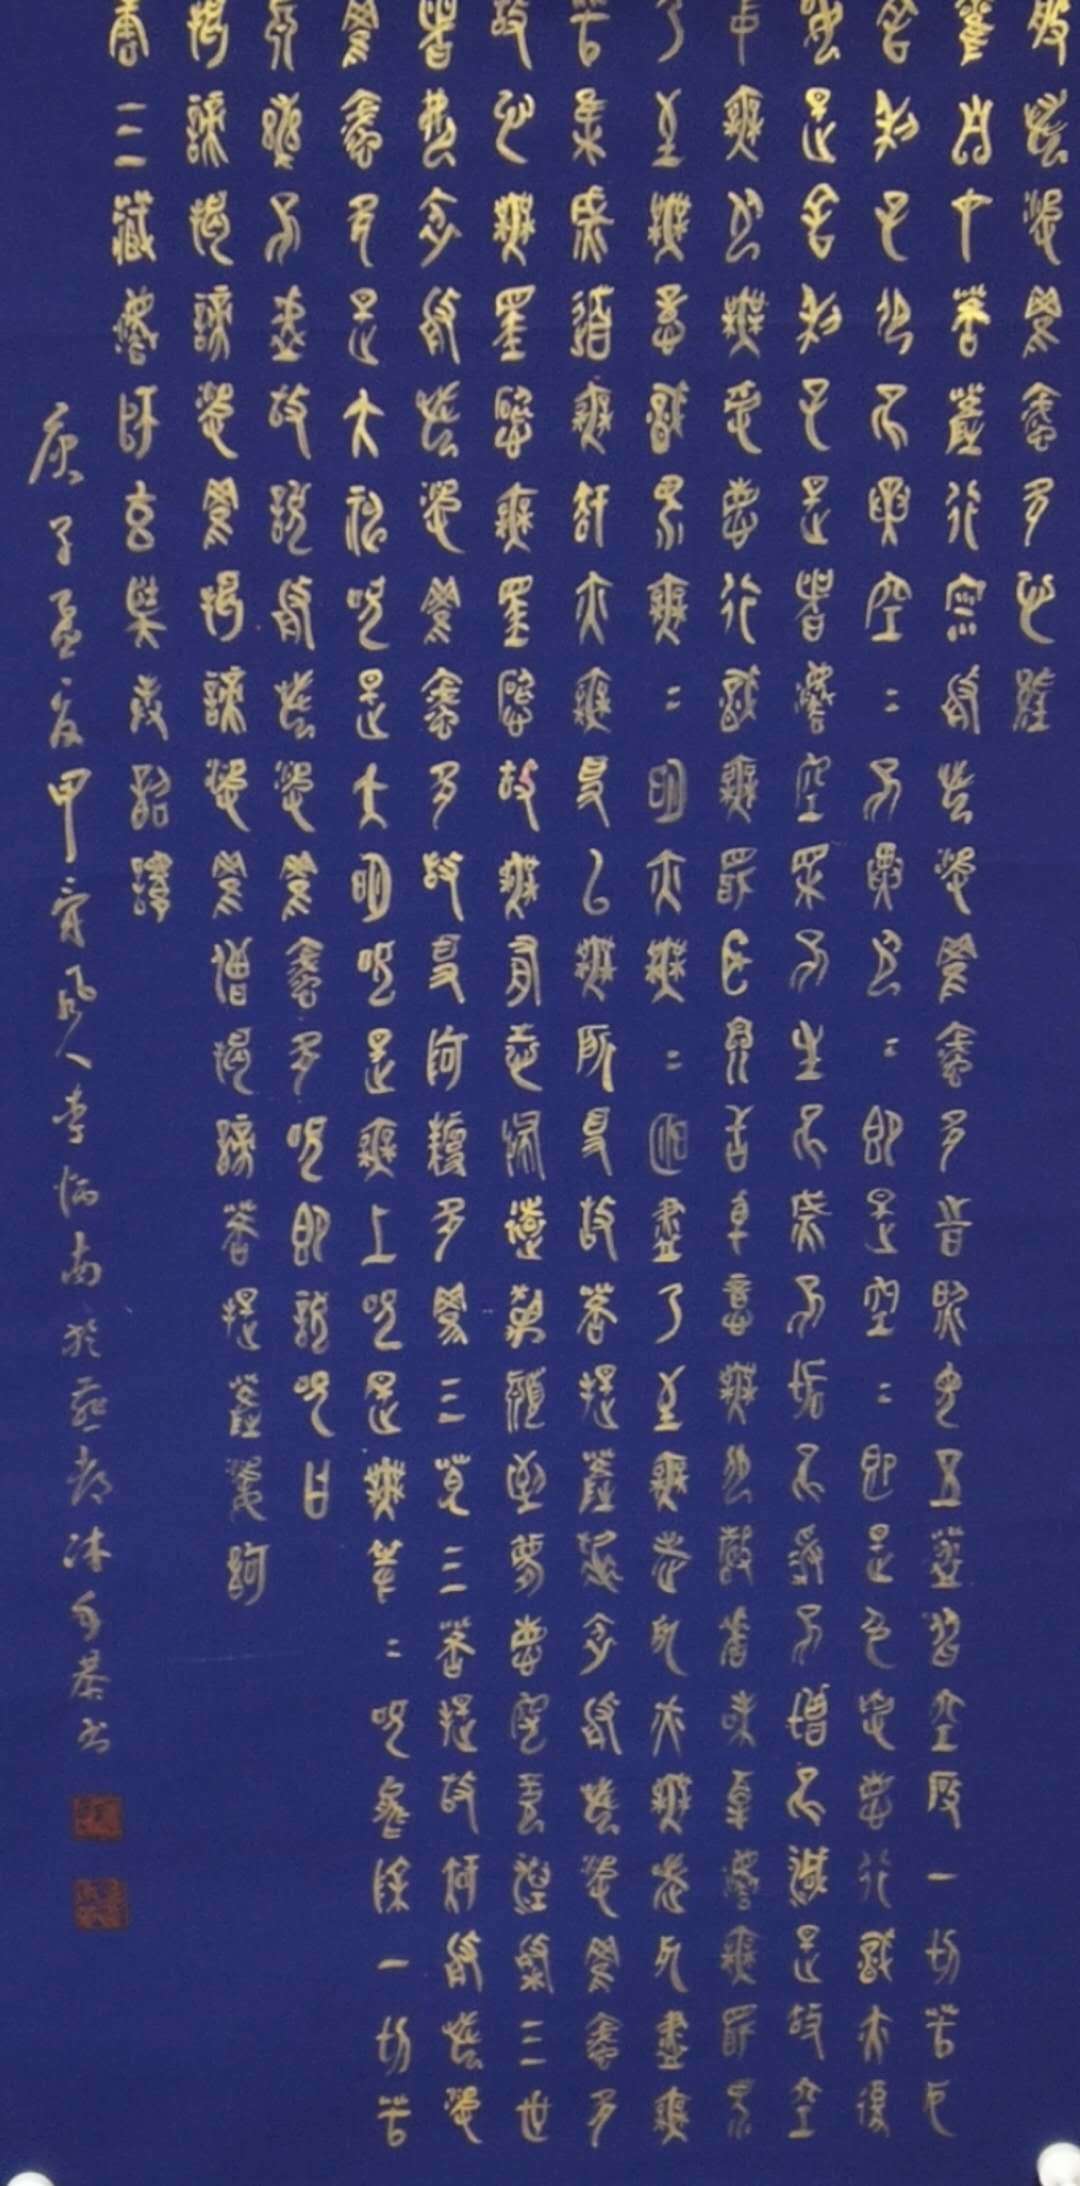 般若波羅蜜多心經
觀自在菩薩行深般若波羅蜜多時照見五蘊皆空度一切苦厄
舍利子色不異空二不異色二即是空二即是色受想行識亦復
如是舍利子是諸法空相不生不滅不垢不淨不增不減是故空
中無色無受想行識無眼耳鼻舌身意無色聲香味觸法無眼界
乃至無意識界無二明亦無二明盡乃至無老死亦無老死盡無
苦集滅道無智亦無得以無所得故菩提薩埵依般若波羅蜜多
故心無罣礙無罣礙故無有恐怖遠離顛倒夢想究竟涅槃三世
諸佛依般若波羅蜜多故得阿耨多羅三藐三菩提故知般若波
羅蜜多是大神咒是大明咒是無上咒是無等二咒能除一切苦
真實不虛故說般若波羅蜜多咒即說咒曰
揭諦揭諦波羅揭諦波羅僧揭諦菩提薩婆訶
唐三藏法師玄奘奉詔譯
庚子孟夏甲骨風人李炳南於燕都沐手恭書